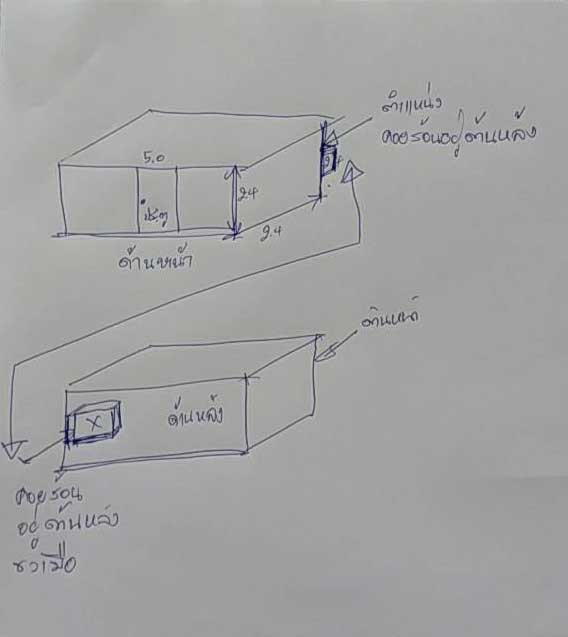 ตำแหน่ง
คอยร้อนอยู่ด้านหลัง
5.0
2.4
ประตู
2.4
ด้านหน้า
ด้านหน้า
X
ด้านหลัง
คอยร้อน
อยู่ด้านหลัง